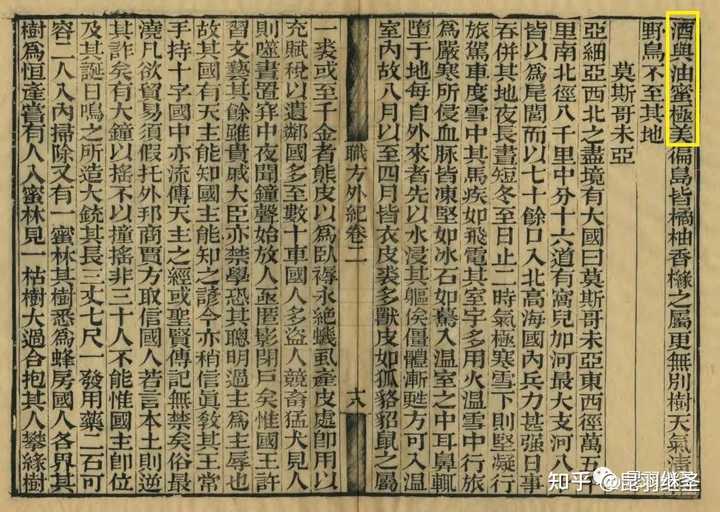 酒與油蜜極美徧島皆橘柚香櫞之屬更無別樹天氣清
野鳥不至其地
莫斯哥未亞
亞細亞西北之盡境有大國曰莫斯哥未亞東西徑萬五千
里南北徑八千里中分十六道有窩兒加河最大支河八十
皆以為尾閭而以七十餘口入北高海國內兵力甚强日事
吞併其地夜長晝短冬至日止二時氣極寒雪下則堅凝行
旅駕車度雪中其馬疾如飛電其室宇多用火溫雪中行旅
為嚴寒所侵血脈皆凍堅如冰石如驀入溫室之中耳鼻輒
墮于地每自外來者先以水浸其軀俟僵體漸甦方可入溫
室內故八月以至四月皆衣皮裘多獸皮如狐貉貂鼠之屬
職方外紀卷二
十八
一裘或至千金者熊皮以為臥褥永絕蟣虱產皮處卽用以
充賦稅以遺鄰國多至數十車國人多盜人競畜猛犬見人
則噬晝置穽中夜聞鐘聲始放人亟匿影閉戶矣惟國王許
習文藝其餘雖貴戚大臣亦禁學恐其聰明過主為主辱也
故其國有天主能知國主能知之諺今亦稍信眞敎其王常
手持十字國中亦流傳天主之經或聖賢傳記無禁矣俗最
澆凡欲貿易須假托外邦商賈方取信國人若言本土則逆
其詐矣有大鐘以搖不以撞搖非三十人不能惟國主卽位
及其誕日鳴之所造大銃其長三丈七尺一發用藥二石可
容二人入內掃除又有一蜜林其樹悉為蜂房國人各界其
樹為恒產嘗有人入蜜林見一枯樹大過合抱其人攀緣樹
知乎 @昆羽继圣